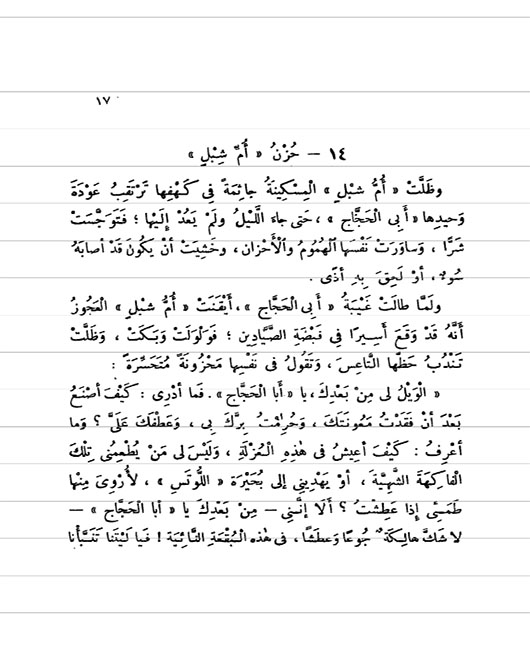 ١٧
١٤ – حُزْنُ « أُمِّ شِبْلٍ »
وظَلَّتْ « أُمُّ شِبْلٍ » المِسْكِينَةُ جاثِمَةً فِي كَهْفِها تَرْتَقِبُ عَوْدَةَ
وَحيدِها « أَبِى الحَجَّاجِ » ، حَتَى جاءَ الَّليْلُ ولَمْ يَعُدْ إِلَيْها ؛ فَتَوَجَّسَتْ
شَرًّا ، وَساوَرَتْ نَفْسَها الهُمُومُ والْأَحْزان ، وخَشِيَتْ أَنْ يَكُونَ قَدْ أصابَهُ
سُوءٌ ، أوْ لَحِقَ بِهِ أذًى .
ولَمَّا طالَتْ غَيْبَةُ « أَبِى الحَجَّاجِ » ، أَيْقَنَتْ « أُمُّ شِبْلٍ » العَجُوزُ
أَنَّهُ قَدْ وَقَعَ أَسِيرًا فِى قَبْضَةِ الصَّيَّادِينِ ؛ فَوَلْوَلَتْ وَبَكَتْ ، وَظَلَّتْ
تَنْدُبُ حَظَّها التَّاعِسَ ، وَتَقُولُ فى نَفْسِها مَحْزُونَةً مُتَحَسِّرَةً :
« الوَيْلُ لى مِنْ بَعْدِكَ ، يا « أَبا الحَجَّاجِ » . فَما أدْرِى : كَيْفَ أَصْنَعُ
بَعْدَ أنْ فَقَدْتُ مَعُونَتَكَ ، وَحُرِمْتُ بِرَّكَ بِى ، وَعَطْفَكَ عَلَىَّ ؟ وَما
أعْرِفُ : كَيْفَ أعِيشُ فى هٰذِهِ الْعُزْلَةِ ، وَلَيْسَ لى مَنْ يُطْعِمُنِى تِلْكَ
الْفاكِهَةَ الشَّهِيَّةَ ، أوْ يَهْدِينِى إلى بُحَيْرَةِ « اللُّوتَسِ » ، لأُرْوِىَ مِنْها
ظَمَئِى إذا عَطِشْتُ ؟ أَلَا إِنَّنِى – مِنْ بَعْدِكَ يا « أبا الحَجَّاجِ » –
لا شَكَّ هالِكَةٌ جُوعًا وَعطَشًا ، فى هٰذه الْبُقْعَةِ النَّائِيَةِ ! فَيا لَيْتَنا تَنَبَّأْنا